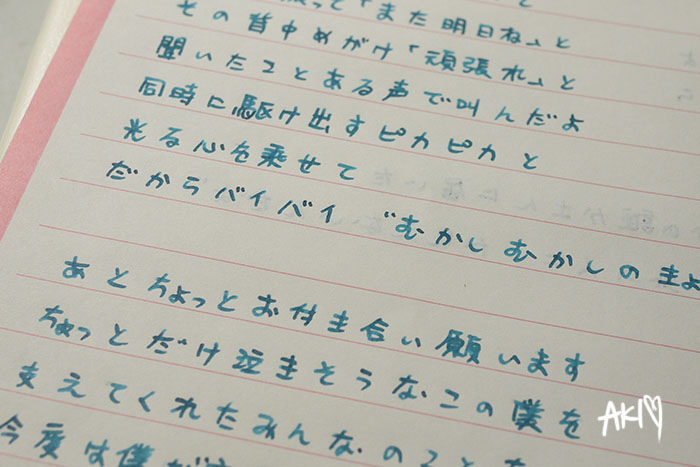 って「また明日ね」と
その背中めがけ「頑張れ」と
聞いたことある声で叫んだよ
同時に駆け出すピカピカと
光る心を乗せて
だからバイバイ“むかしむかしの主よ
あとちょっとお付き合い願います
ちょっとだけ泣きそうなこの僕を
支えてくれたみんなのことを
今度は僕が
AKI♡